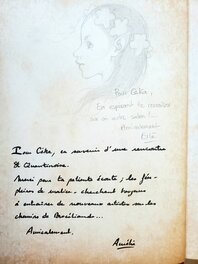 Pour Céka,
En espérant te revoir
sur un autre salon !...
Amicalement
Pour Céka, en souvenir d'une rencontre
St Quentinoise.
Merci pour ta patiente écoute ; les
de cherchent toujours
à entraîner de nouveaux artistes sur les
chemins de Brocéliande...
Amicalement,